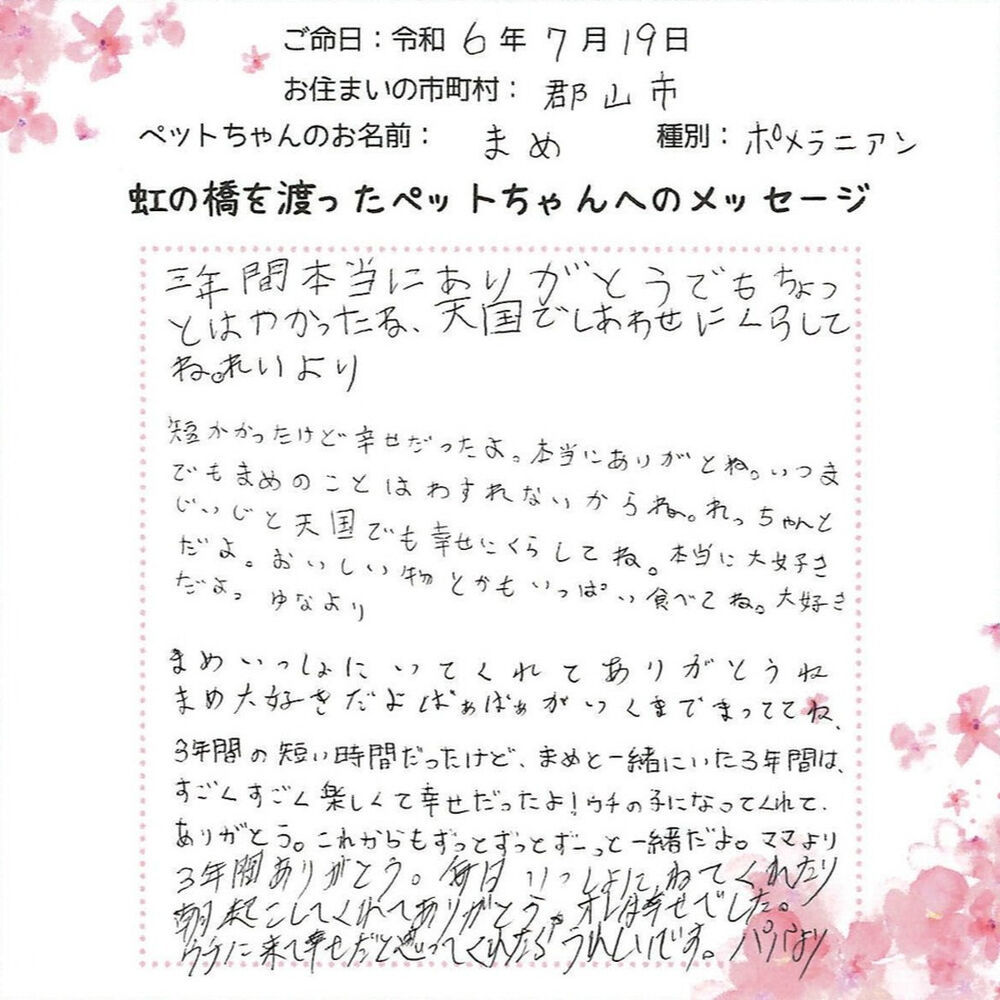 ご命日：令和 6 年 7 月 19 日
お住まいの市町村： 郡山市
ペットちゃんのお名前： まめ 種別：ポメラニアン
虹の橋を渡ったペットちゃんへのメッセージ
三年間本当にありがとうでもちょっ
とはやかったね、天国でしあわせにくらして
ね。れいより
短かかったけど幸せだったよ。本当にありがとね。いつま
でもまめのことはわすれないからね。れっちゃんと
じいじと天国でも幸せにくらしてね。本当に大好き
だよ。おいしい物とかもいっぱい食べてね。大好き
だよっ ゆなより
まめいっしょにいてくれてありがとうね
まめ大好きだよばぁばぁがいくまでまっててね、
3年間の短い時間だったけど、まめと一緒にいた3年間は、
すごくすごく楽しくて幸せだったよ！ウチの子になってくれて、
ありがとう。これからもずっとずっとずーっと一緒だよ。ママより
3年間ありがとう。毎日いっしょにねてくれたり
朝起こしてくれてありがとう。オレは幸せでした。
ウチに来て幸せだと思ってくれたらうれしいです。パパより